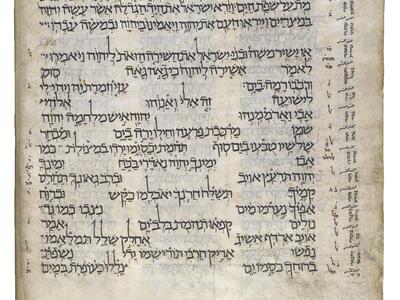 מת על שפת הים וירא ישראל את היד הגדלה אשר עשה יהוה
במצרים וייראו העם את יהוה ויאמינו ביהוה ובמשה עבדו
אז ישיר משה ובני ישראל את השירה הזאת ליהוה ויאמרו
לאמר אשירה ליהוה כי גאה גאה סוס
ורכבו רמה בים עזי וזמרת יה ויהי לי
לישועה זה אלי ואנוהו אלהי
אבי וארממנהו יהוה איש מלחמה יהוה
שמו מרכבת פרעה וחילו ירה בים ומבחר
שלשיו טבעו בים סוף תהמת יכסימו ירדו במצולת כמו
אבן ימינך יהוה נאדרי בכח ימינך
יהוה תרעץ אויב וברב גאונך תהרס
קמיך תשלח חרנך יאכלמו כקש וברוח
אפיך נערמו מים נצבו כמו נד
נזלים קפאו תהמת בלב ים אמר
אויב ארדף אשיג אחלק שלל תמלאמו
נפשי אריק חרבי תורישמו ידי נשפת
ברוחך כסמו ים צללו כעופרת במים